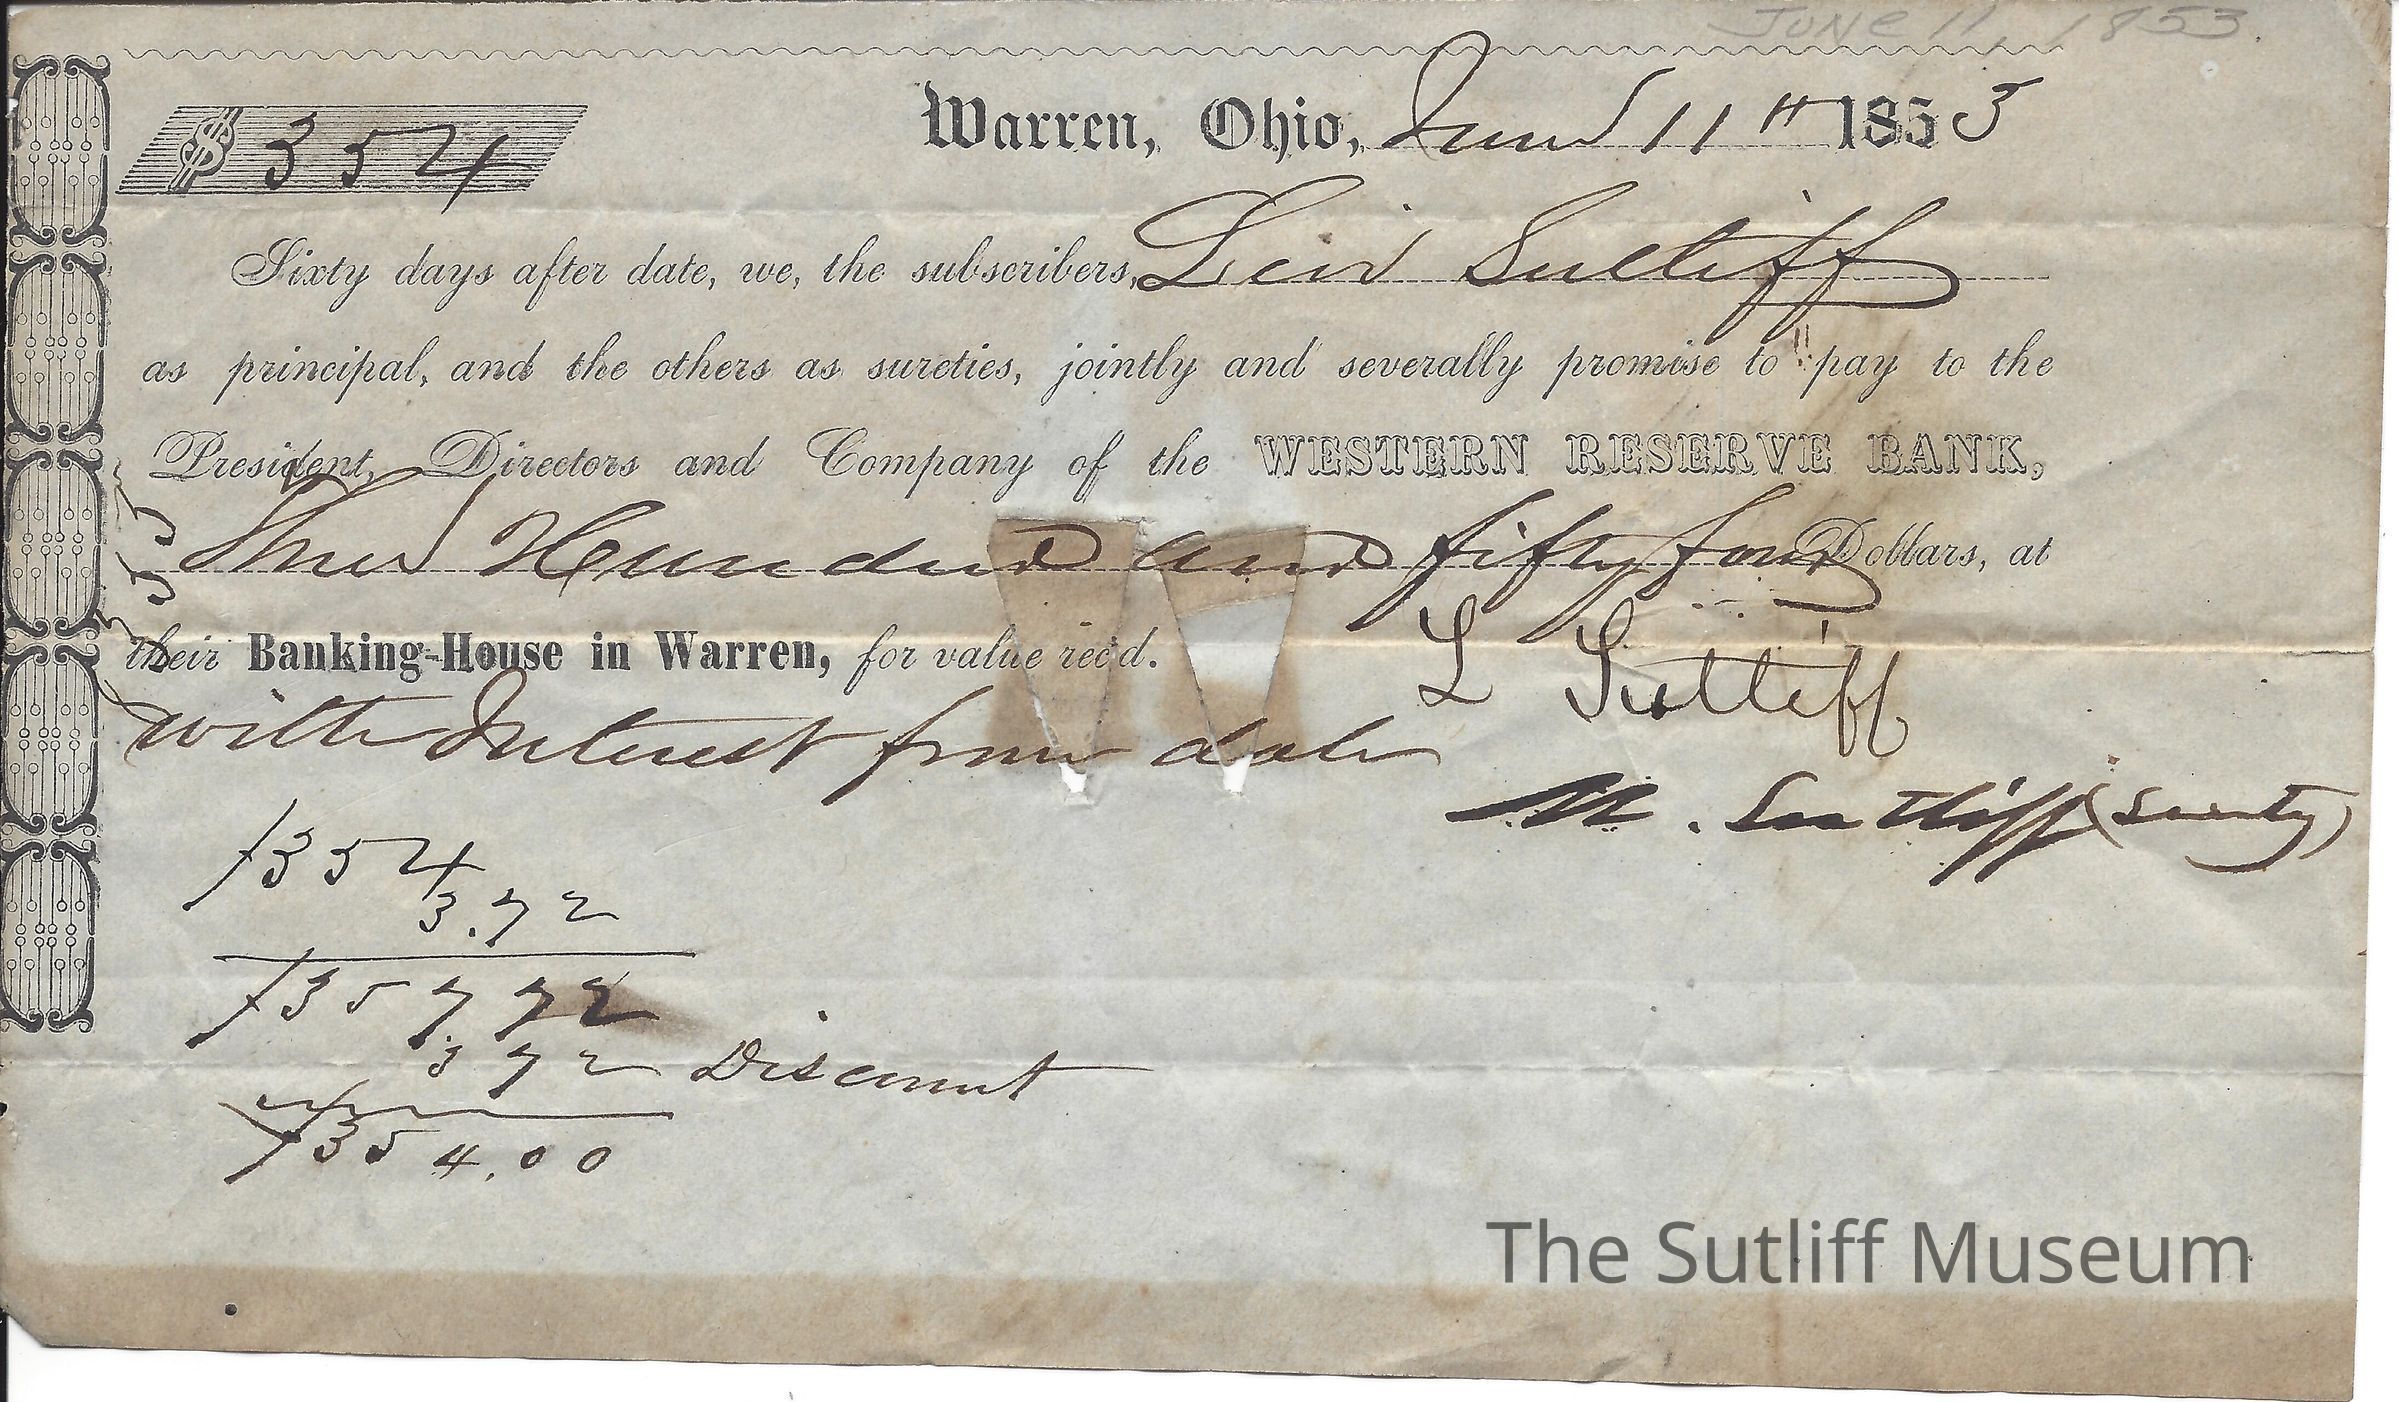 JUNE 11, 1853.
$354 Warren, Ohio, June 11th 1853
Sixty days after date, we, the subscribers, Levi Sutliff
as principal, and the others as sureties, jointly and severally promise to pay to the
President, Directors and Company of the WESTERN RESERVE BANK,
Three Hundred and fifty four Dollars, at
their Banking-House in Warren, for value rec'd.
L Sutliff
with Interest from date
M. Sutliff (surety)
$354
3.72
$357.72
372 Discount
$354.00
The Sutliff Museum